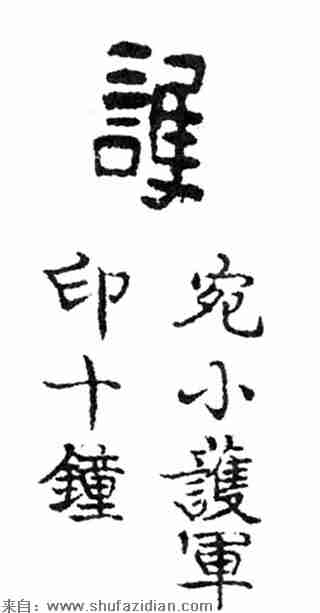 護
宛小護軍
印十鐘
来自:www.shufazidian.com